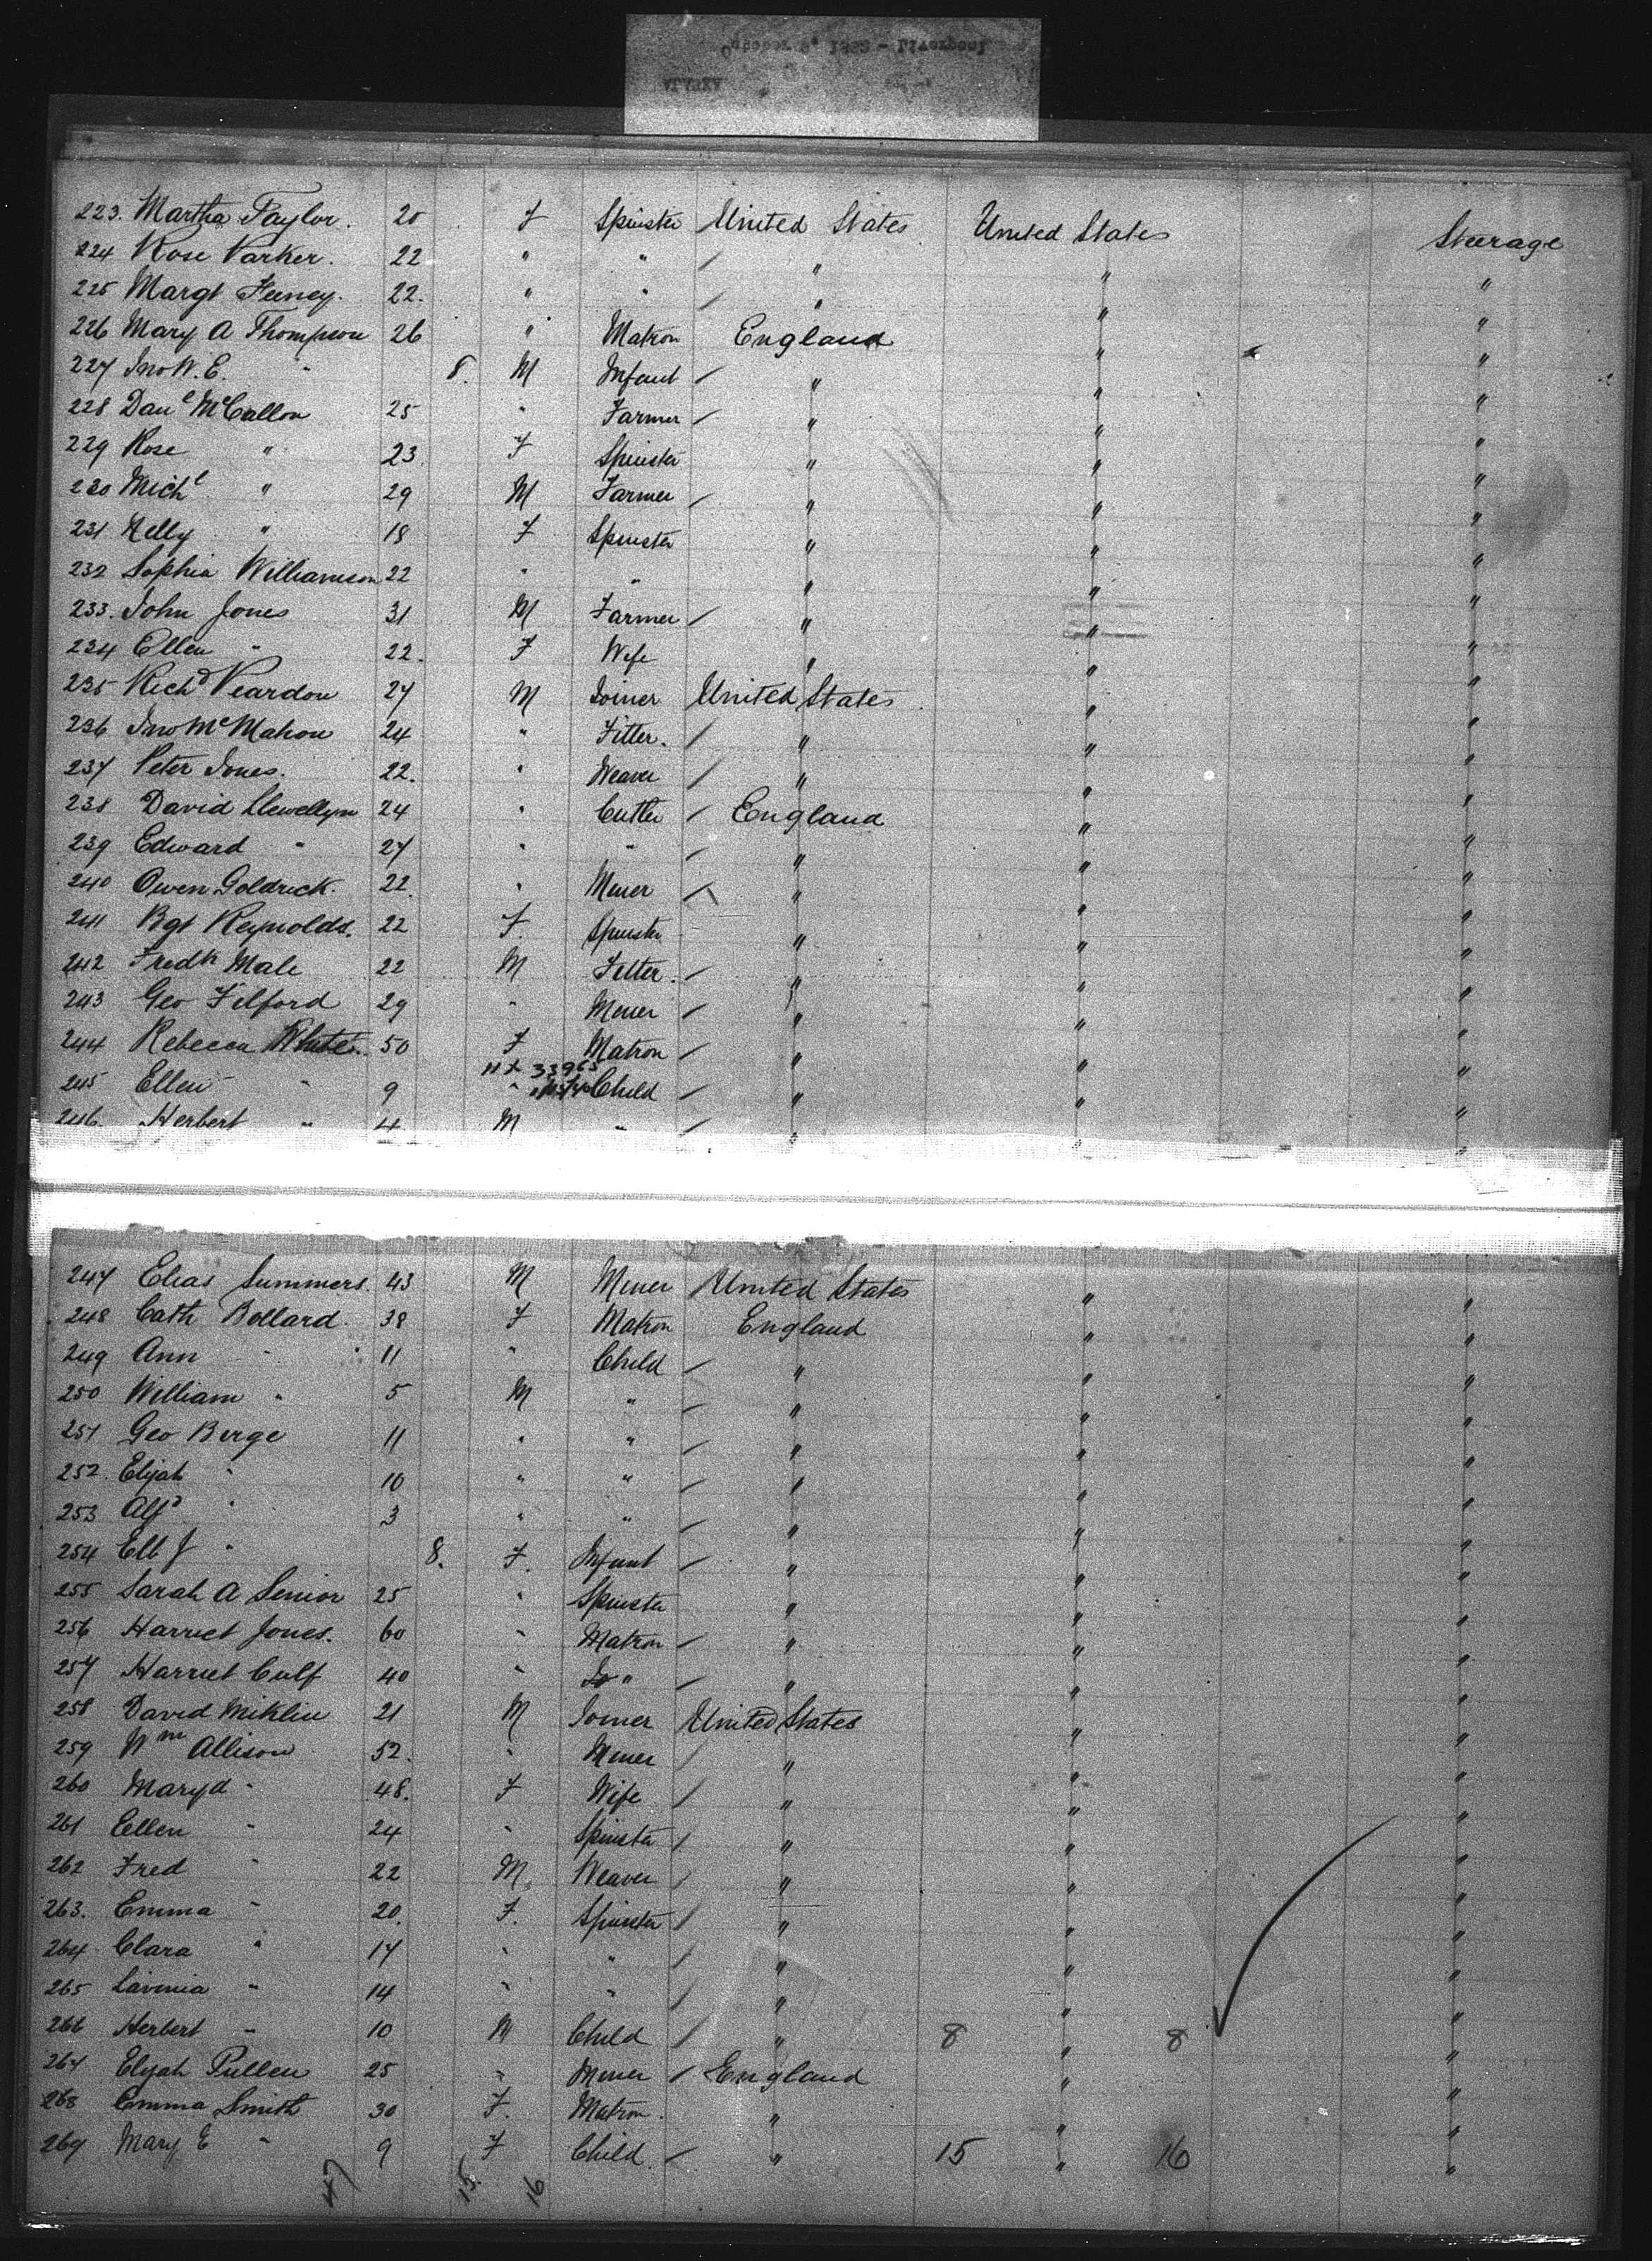 223. Martha Taylor. 20 F Spinster United States United States Steerage
224 Rose Parker. 22 " " / " " "
225 Margt Feeney. 22. " " / " " "
226 Mary A Thompson 26 " Matron England " "
227 Jno W. E. " 8. M Infant / " " "
228 Danl McCallon 25 " Farmer / " " "
229 Rose " 23 F Spinster " " "
230 Michl " 29 M Farmer / " " "
231 Nelly " 18 F Spinster " " "
232 Sophia Williamson 22 " " " " "
233. John Jones 31 M Farmer / " " "
234 Ellen " 22. F Wife " " "
235 Richd Reardon 27 M Joiner United States " "
236 Jno McMahon 24 " Fitter. / " " "
237 Peter Jones. 22. " Weaver / " " "
238 David Llewellyn 24 " Cutler / England " "
239 Edward " 27 " " / " " "
240 Owen Goldrick. 22. " Miner / " " "
241 Bgt Reynolds. 22 F. Spinster " " "
242 Fredk Male 22 M Fitter. / " " "
243 Geo Filford 29 " Miner / " " "
244 Rebecca White. 50 F Matron / " " "
33965
245 Ellen " 9 " Child / " " "
246. Herbert " 4 M " / " " "
247 Elias Summers. 43 M Miner United States " "
248 Cath Bollard. 38 F Matron England " "
249 Ann " 11 " Child / " " "
250 William " 5 M " / " " "
251 Geo Birge 11 " " / " " "
252. Elijah " 10 " " / " " "
253 Alfd " 3 " " / " " "
254 Elb J " 8. F. Infant / " " "
255 Sarah A Senior 25 " Spinster " " "
256 Harriet Jones. 60 " Matron / " " "
257 Harriet Culf 40 " Do " / " " "
258 David Miklin 21 M Joiner United States " "
259 Wm Allison 52. " Miner / " " "
260 Maryd " 48. F Wife / " " "
261 Ellen " 24 " Spinster / " " "
262 Fred " 22 M. Weaver / " " "
263. Emma " 20. F. Spinster / " " "
264 Clara " 17 " " / " " "
265 Lavinia " 14 " " / " " "
266 Herbert " 10 M Child / " 8 " 8 "
267 Elijah Pullen 25 " Miner / England " "
268 Emma Smith 30 F. Matron. " " "
269 Mary E " 9 F Child. / " 15 " 16 "
47 15. 16